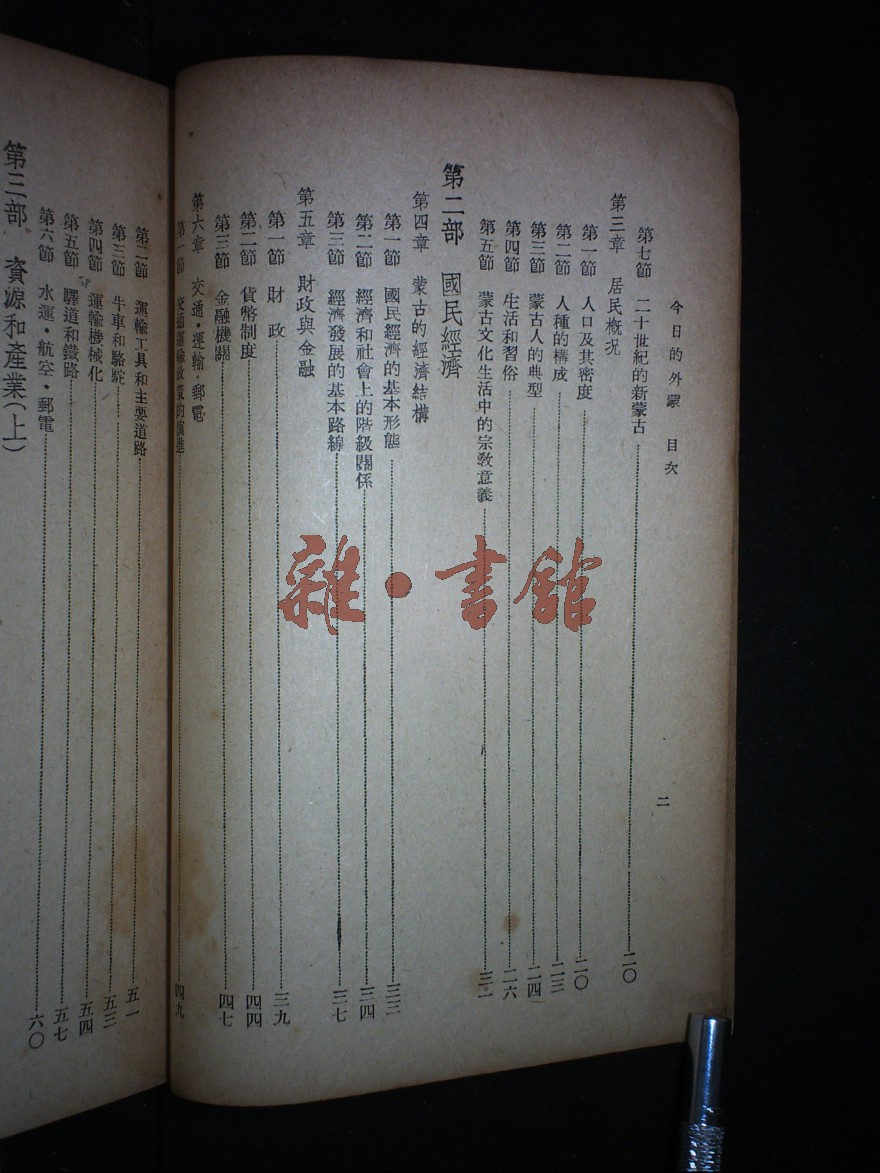 今日的外蒙 目次 二
第七節 二十世紀的新蒙古 二〇
第三章 居民概況
第一節 人口及其密度 二〇
第二節 人種的構成 二三
第三節 蒙古人的典型 二四
第四節 生活和習俗 二六
第五節 蒙古文化生活中的宗教意義 三一
第二部 國民經濟
第四章 蒙古的經濟結構
第一節 國民經濟的基本形態 三三
第二節 經濟和社會上的階級關係 三四
第三節 經濟發展的基本路線 三七
第五章 財政與金融
第一節 財政 三九
第二節 貨幣制度 四四
第三節 金融機關 四七
第六章 交通・運輸・郵電
第一節 交通運輸政策的演進 四九
第二節 運輸工具和主要道路 五一
第三節 牛車和駱駝 五三
第四節 運輸機械化 五四
第五節 驛道和鐵路 五七
第六節 水運・航空・郵電 六〇
第三部 資源和產業(上)
雜・書館